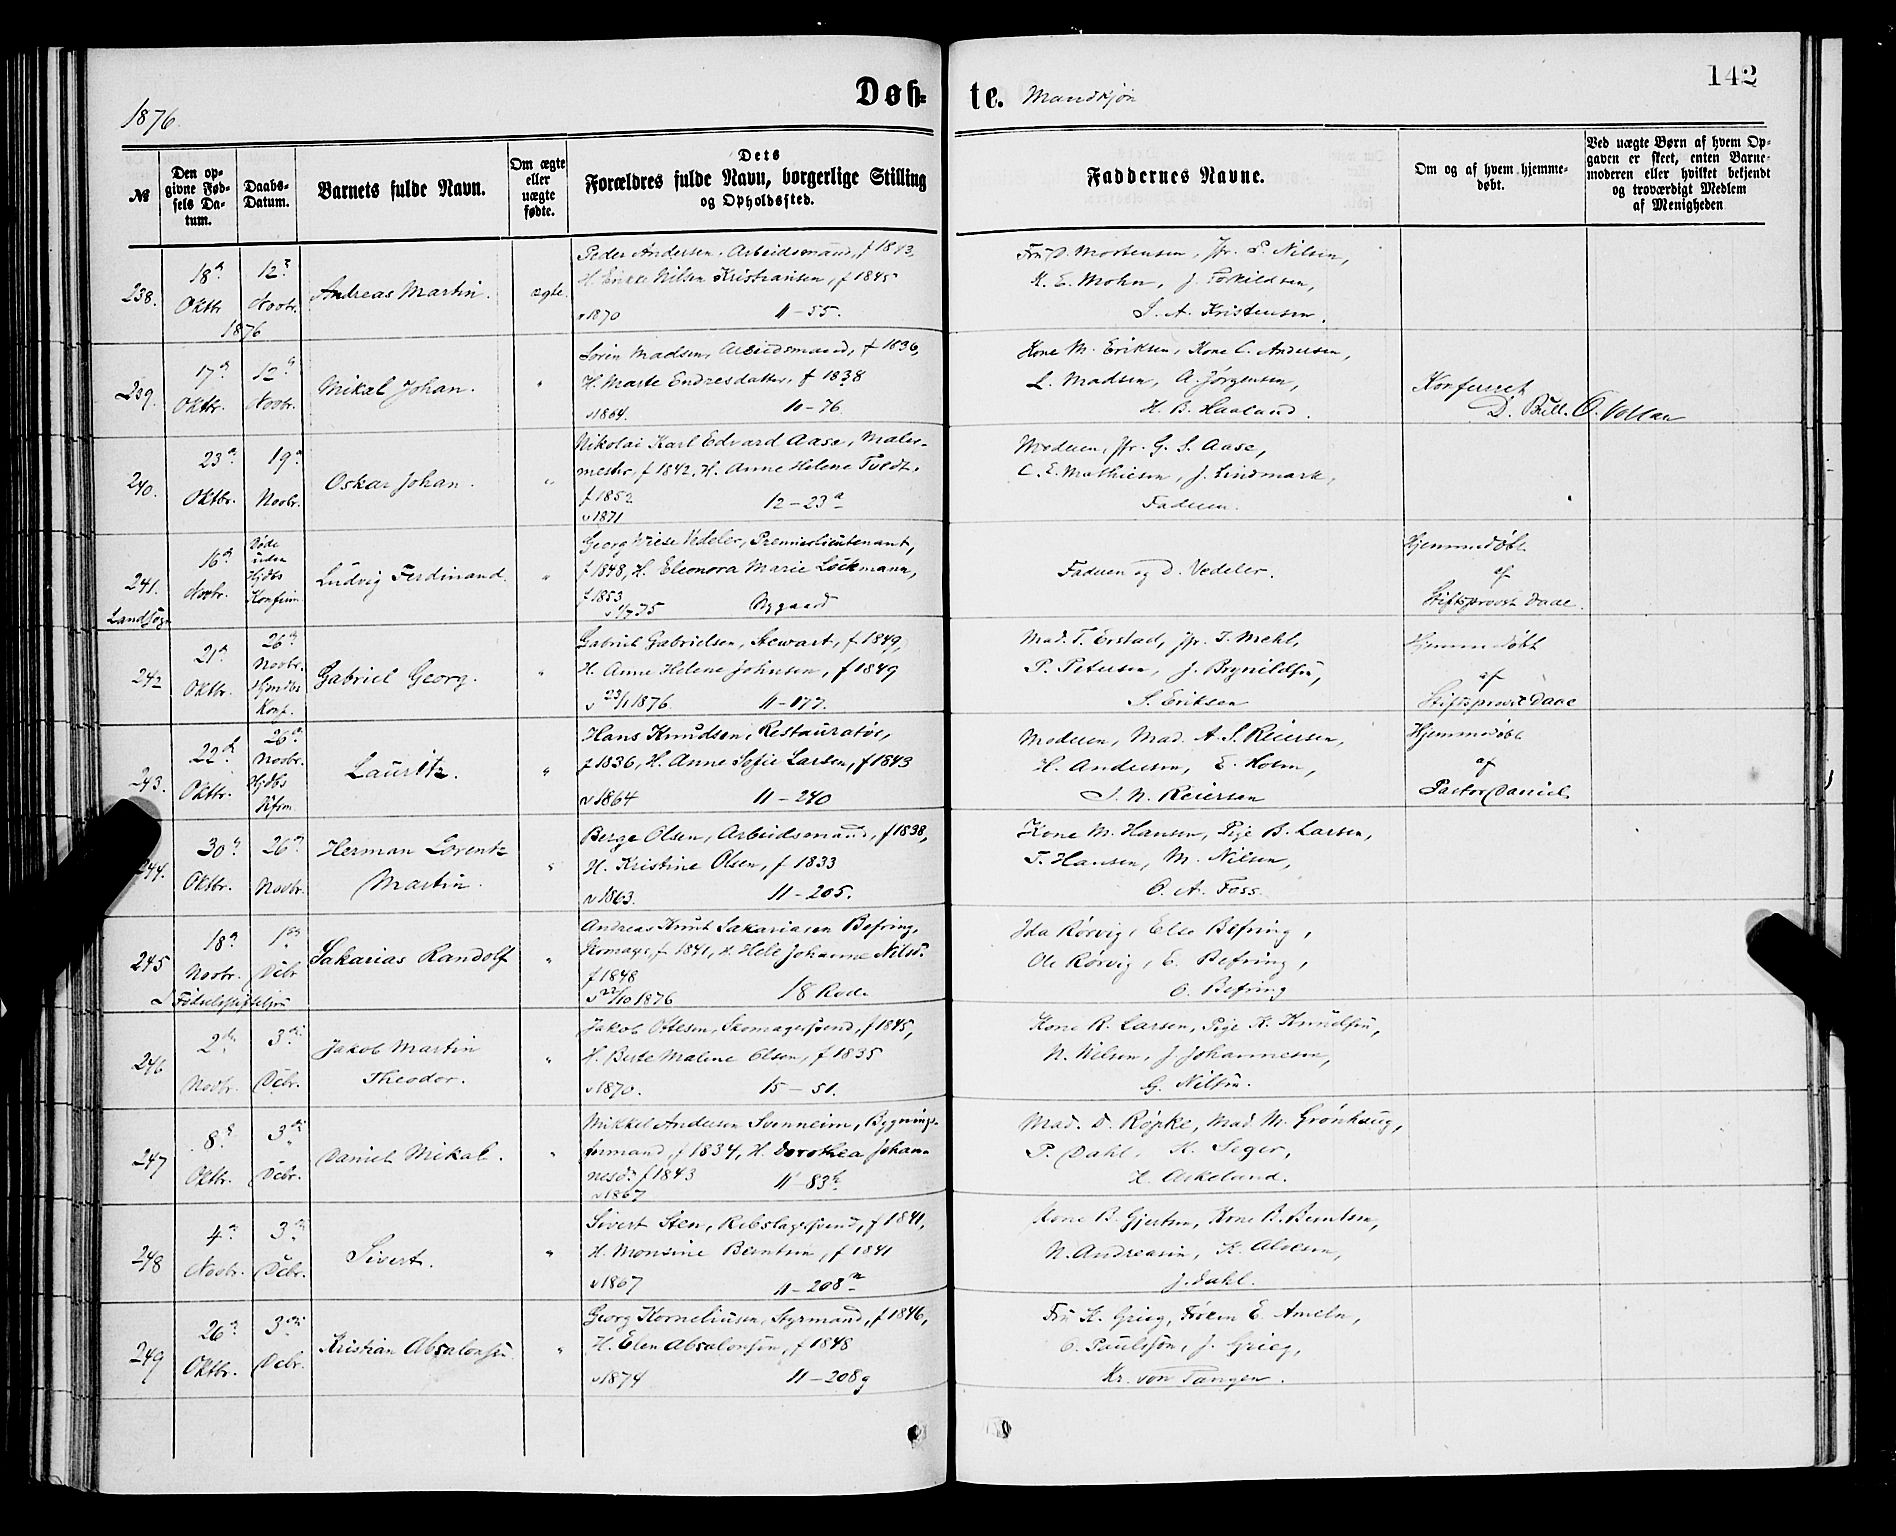 142
1876.
Døb-
te. Mandkjøn
№
Den opgivne Fødsels Datum.
Daabs-Datum.
Barnets fulde Navn.
Om ægte eller uægte fødte.
Dets
Forældres fulde Navn, borgerlige Stilling
og Opholdssted.
Faddernes Navne.
Om og af hvem hjemmedøbt.
Ved uægte Børn af hvem Opgaven er skeet, enten Barnemoderen eller hvilket bekjendt og troværdigt Medlem af Menigheden
238.
18de Oktbr. 1876
12te Novbr.
Andreas Martin.
ægte.
Peder Andersen, Arbeidsmand, f 1843,
H. Nilsen Kristiansen, f 1845
v 1870 11-55.
Fru D. Mortensen, Jfr. P. Nilsen,
K. E. Mohn, J. Torkildsen,
S. A. Kristensen.
239.
17de Oktbr.
12te Novbr.
Mikal Johan.
"
Søren Madsen, Arbeidsmand, f 1836,
H. Marte Endresdatter, f 1838
v 1864. 11-76.
Kone M. Eriksen, Kone C. Andersen,
L. Madsen, A. Jørgensen,
H. B. Haaland.
D. Bull. O. Vollan
240.
23de Oktbr.
19de Novbr.
Oskar Johan.
"
Nikolai Karl Edvard Aase, Maler-
mester, f 1842, H. Anne Helene Tvedt,
f 1852
v 1871 12-23a
Moderen, Jfr. G. S. Aase,
C. E. Mathiesen, J. Lindmark,
Faderen.
241.
Landsogn
16de Novbr.
Døde uden Hjdbs Konfirm.
Ludvig Ferdinand.
"
Georg Wiese Vedeler, Premierlieutenant,
f 1848, H. Eleonora Marie Lockmann,
f 1853
v 1/7 75 Nygaard
Faderen og D. Vedeler.
Hjemmedøbt
af
Stiftsprovst Daae.
242
21de Oktbr.
26de Novbr. Hjmdbs Konf.
Gabriel Georg.
"
Gabriel Gabrielsen, Stewart, f 1849,
H. Anne Helene Johnsen, f 1849
v 23/1 1876. 11-177.
Mad. T. Erstad, Jfr. T. Mehl,
P. Petersen, J. Brynildsen,
S. Eriksen
Hjemmedøbt
af
Stiftsprovst Daae
243.
22de Oktbr.
26de Novbr. Hjdbs Kfirm.
Lauritz.
"
Hans Knudsen, Restauratør,
f 1836, H. Anne Sofie Larsen, f 1843
v 1864 11-240
Moderen, Mad. A. S. Reiersen,
H. Andersen, E. Holm,
S. N. Reiersen
Hjemmedøbt
af
Pastor Daniel
244.
30te Oktbr.
26de Novbr.
Herman Lorentz
Martin.
"
Berge Olsen, Arbeidsmand, f 1838,
H. Kristine Olsen, f 1833
v 1863. 11-205.
Kone M. Hansen, Pige B. Larsen,
T. Hansen, M. Nilsen,
O. A. Foss.
245
18de Novbr.
1ste Decbr
Sakarias Randolf
"
Andreas Knut Sakariasen Befring,
Skomager, f 1841, H. Hele Johanne Nilsd.
f 1848
v 22/10 1876 18 Rode
Ida Rørvig, Else Befring,
Ole Rørvig, E. Befring,
O. Befring
246
2den Novbr.
3die Decbr.
Jakob Martin
Theodor.
"
Jakob Ottesen, Skomagersvend, f 1845,
H. Berte Malene Olsen, f 1835
v 1870. 15-51.
Kone R. Larsen, Pige K. Knudsen,
N. Nilsen, J. Johannesen,
G. Nilsen.
247
8de Oktbr.
3die Decbr.
Daniel Mikal.
"
Mikkel Andersen Svenneim, Bygnings-
formand, f 1834, H. Dorothea Johan-
nesd. f 1843
v 1867 11-83b
Mad. D. Røpke, Mad. M. Grønhaug,
P. Dahl, K. Seger,
H. Askeland.
248
4de Novbr.
3die Decbr.
Sivert.
"
Sivert Sten, Rebslagersvend, f 1841,
H. Monsine Berntsen, f 1841
v 1867 11-208a
Kone B. Gjertsen, Kone B. Berntsen,
N. Andreasen, K. Alvesen,
J. Dahl.
249
26de Oktbr.
3die Decbr.
Kristian Absalonsen
"
Georg Korneliusen, Styrmand, f 1846,
H. Elen Absalonsen, f 1848
v 1874 11-208g
Fru K. Grieg, Frøken E. Ameln,
C. Paulsson, J. Grieg,
Kr. von Tangen.